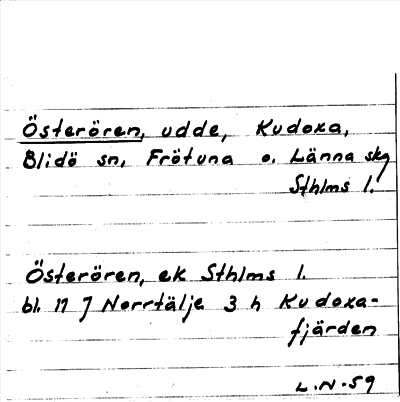 Österören, udde, Kudoxa,
Blidö sn, Frötuna o. Länna skg
Sthlms l.
Österören, ek Sthlms l.
bl. 11 J Norrtälje 3 h Kudoxa-
fjärden
L.N-59